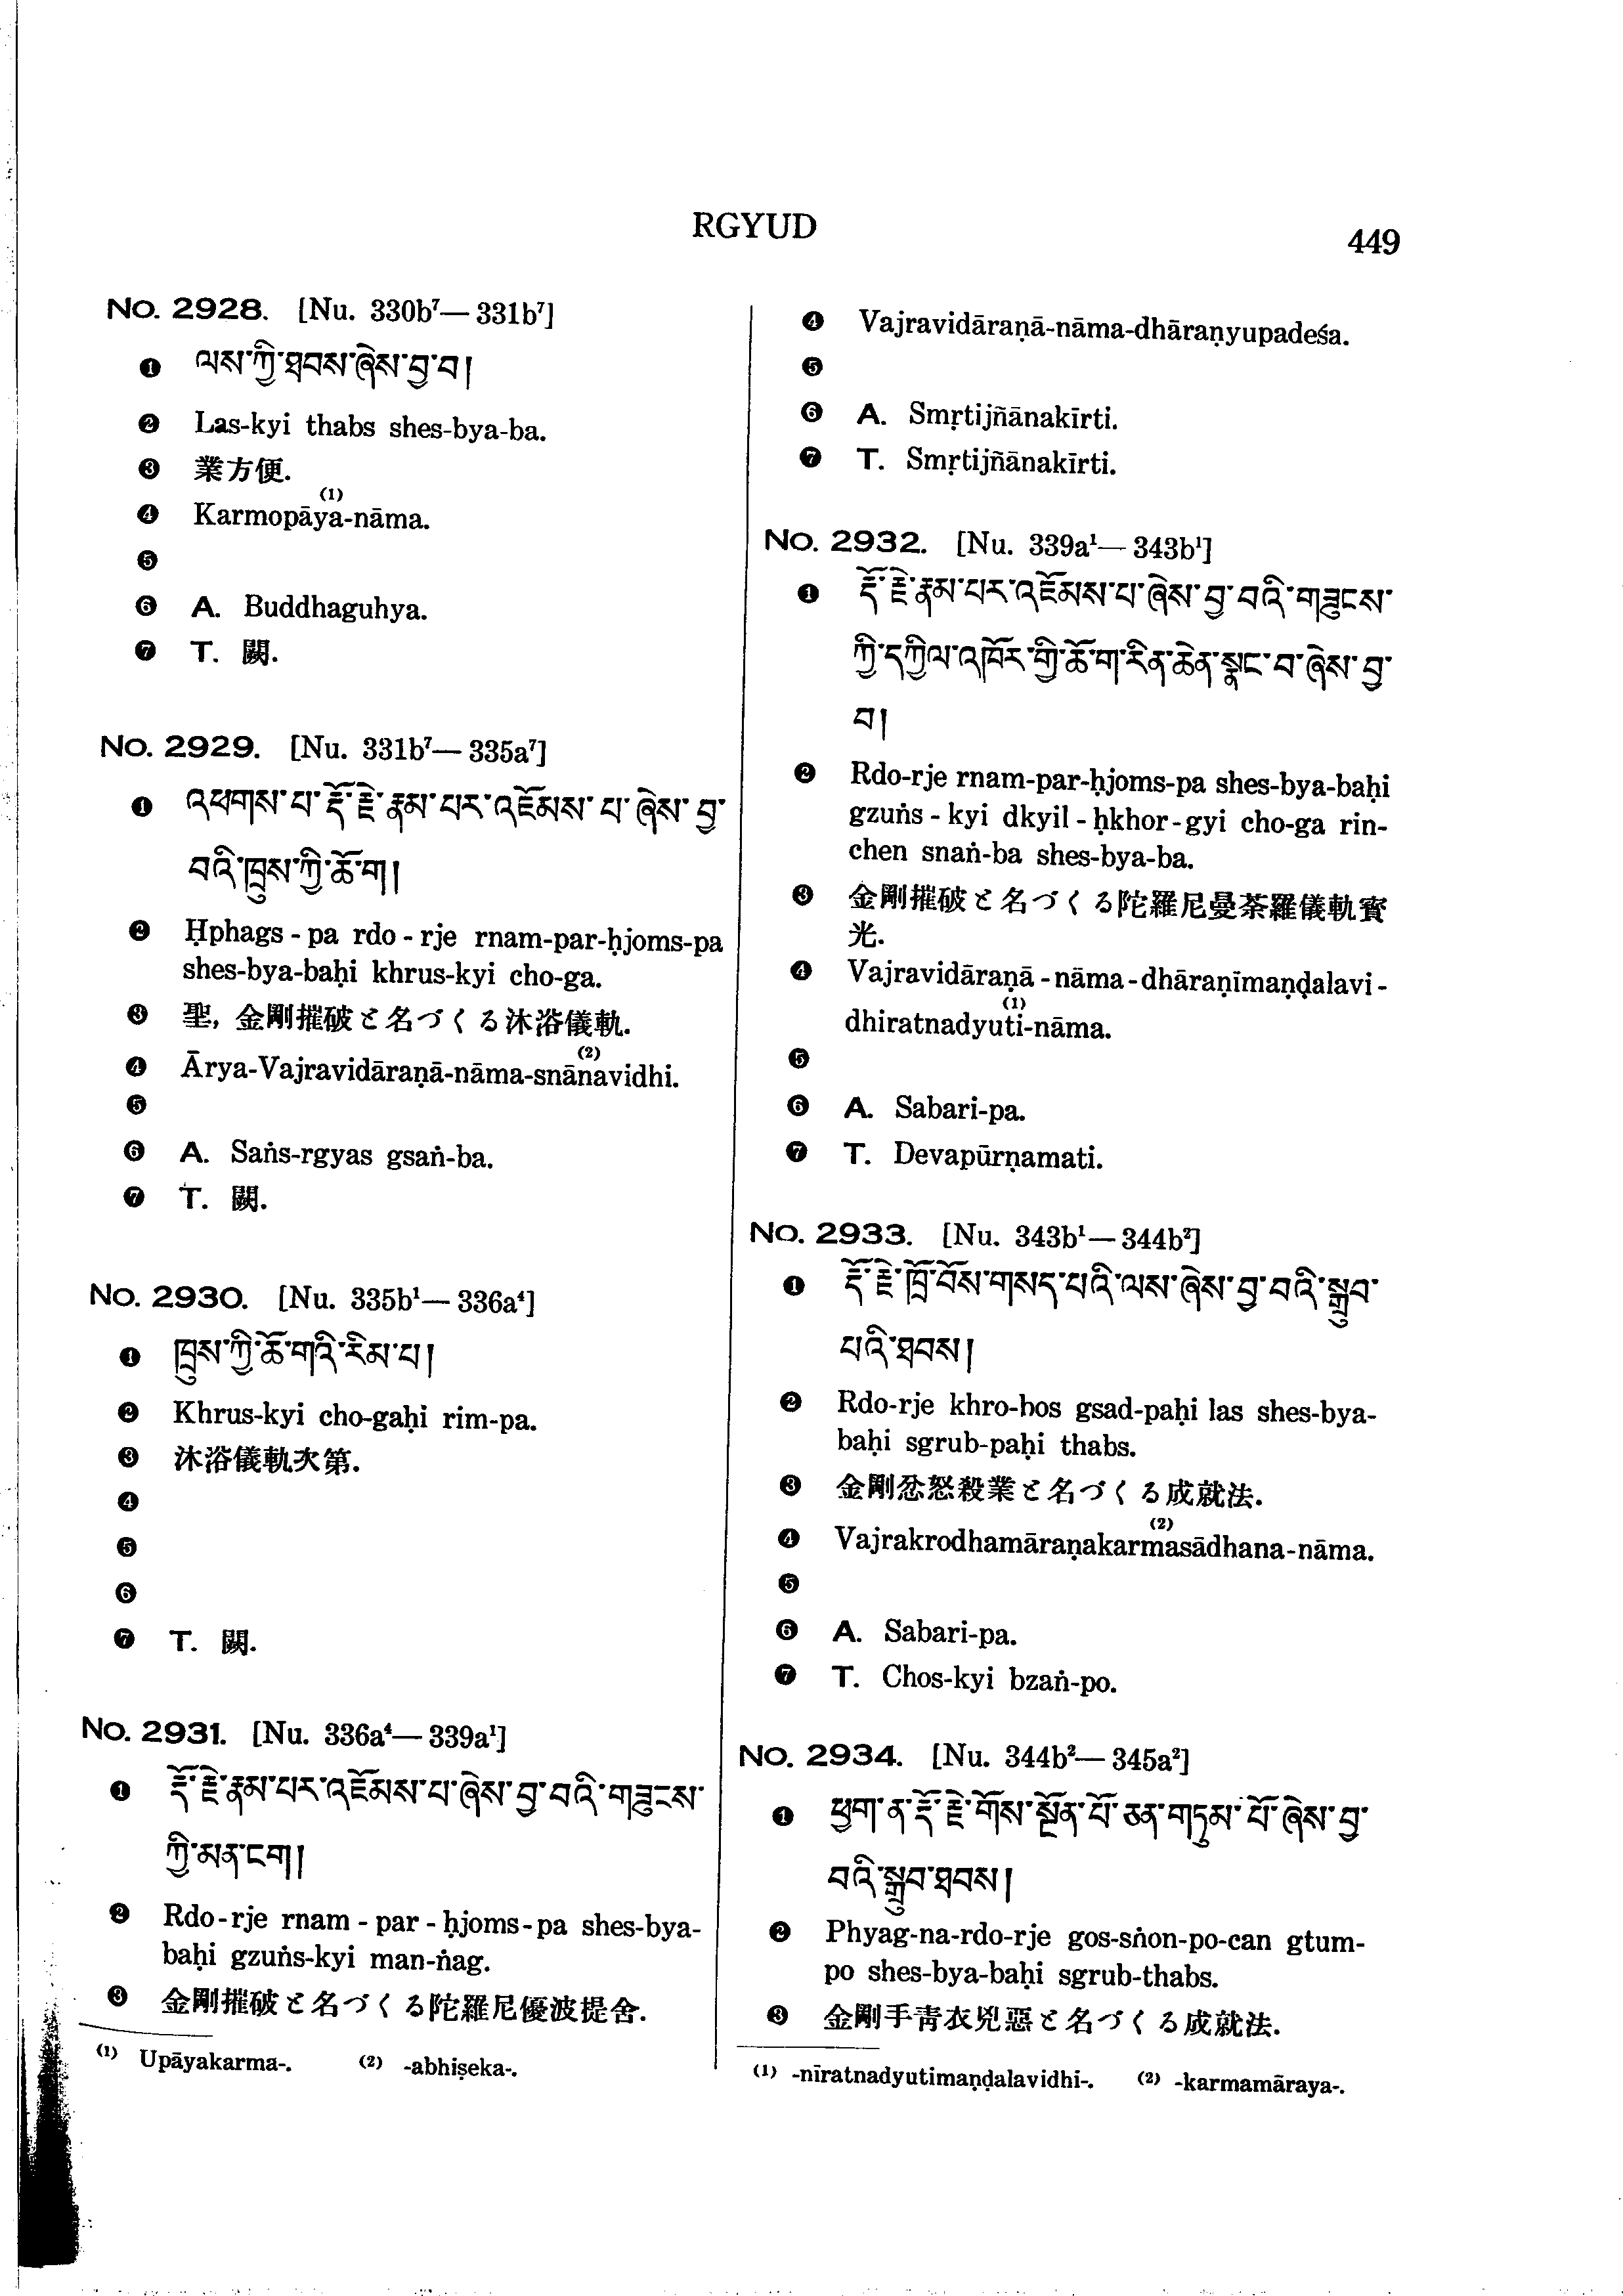 RGYUD
449
No. 2928. [Nu. 330b⁷—331b⁷]
❶ ལས་ཀྱི་ཐབས་ཞེས་བྱ་བ།
❷ Las-kyi thabs shes-bya-ba.
❸ 業方便.
❹ Karmopāya-nāma.⁽¹⁾
❺
❻ A. Buddhaguhya.
❼ T. 闕.
No. 2929. [Nu. 331b⁷—335a⁷]
❶ འཕགས་པ་རྡོ་རྗེ་རྣམ་པར་འཇོམས་པ་ཞེས་བྱ་
བའི་ཁྲུས་ཀྱི་ཆོ་ག།
❷ Ḥphags-pa rdo-rje rnam-par-ḥjoms-pa
shes-bya-baḥi khrus-kyi cho-ga.
❸ 聖, 金剛摧破と名づくる沐浴儀軌.
❹ Ārya-Vajravidāraṇā-nāma-snānavidhi.⁽²⁾
❺
❻ A. Saṅs-rgyas gsaṅ-ba.
❼ T. 闕.
No. 2930. [Nu. 335b¹—336a⁴]
❶ ཁྲུས་ཀྱི་ཆོ་གའི་རིམ་པ།
❷ Khrus-kyi cho-gaḥi rim-pa.
❸ 沐浴儀軌次第.
❹
❺
❻
❼ T. 闕.
No. 2931. [Nu. 336a⁴—339a¹]
❶ རྡོ་རྗེ་རྣམ་པར་འཇོམས་པ་ཞེས་བྱ་བའི་གཟུངས་
ཀྱི་མན་ངག།
❷ Rdo-rje rnam-par-ḥjoms-pa shes-bya-
baḥi gzuṅs-kyi man-ṅag.
❸ 金剛摧破と名づくる陀羅尼優波提舍.
⁽¹⁾ Upāyakarma-. ⁽²⁾ -abhiṣeka-.
❹ Vajravidāraṇā-nāma-dhāraṇyupadeśa.
❺
❻ A. Smṛtijñānakīrti.
❼ T. Smṛtijñānakīrti.
No. 2932. [Nu. 339a¹—343b¹]
❶ རྡོ་རྗེ་རྣམ་པར་འཇོམས་པ་ཞེས་བྱ་བའི་གཟུངས་
ཀྱི་དཀྱིལ་འཁོར་གྱི་ཆོ་ག་རིན་ཆེན་སྣང་བ་ཞེས་བྱ་
བ།
❷ Rdo-rje rnam-par-ḥjoms-pa shes-bya-baḥi
gzuṅs-kyi dkyil-ḥkhor-gyi cho-ga rin-
chen snaṅ-ba shes-bya-ba.
❸ 金剛摧破と名づくる陀羅尼曼荼羅儀軌寳
光.
❹ Vajravidāraṇā-nāma-dhāraṇīmaṇḍalavi-
dhiratnadyuti-nāma.⁽¹⁾
❺
❻ A. Sabari-pa.
❼ T. Devapūrṇamati.
No. 2933. [Nu. 343b¹—344b²]
❶ རྡོ་རྗེ་ཁྲོ་བོས་གསད་པའི་ལས་ཞེས་བྱ་བའི་སྒྲུབ་
པའི་ཐབས།
❷ Rdo-rje khro-bos gsad-paḥi las shes-bya-
baḥi sgrub-paḥi thabs.
❸ 金剛忿怒殺業と名づくる成就法.
❹ Vajrakrodhamāraṇakarmasādhana-nāma.⁽²⁾
❺
❻ A. Sabari-pa.
❼ T. Chos-kyi bzaṅ-po.
No. 2934. [Nu. 344b²—345a²]
❶ ཕྱག་ན་རྡོ་རྗེ་གོས་སྔོན་པོ་ཅན་གཏུམ་པོ་ཞེས་བྱ་
བའི་སྒྲུབ་ཐབས།
❷ Phyag-na-rdo-rje gos-sṅon-po-can gtum-
po shes-bya-baḥi sgrub-thabs.
❸ 金剛手靑衣兇惡と名づくる成就法.
⁽¹⁾ -nīratnadyutimaṇḍalavidhi-. ⁽²⁾ -karmamāraya-.